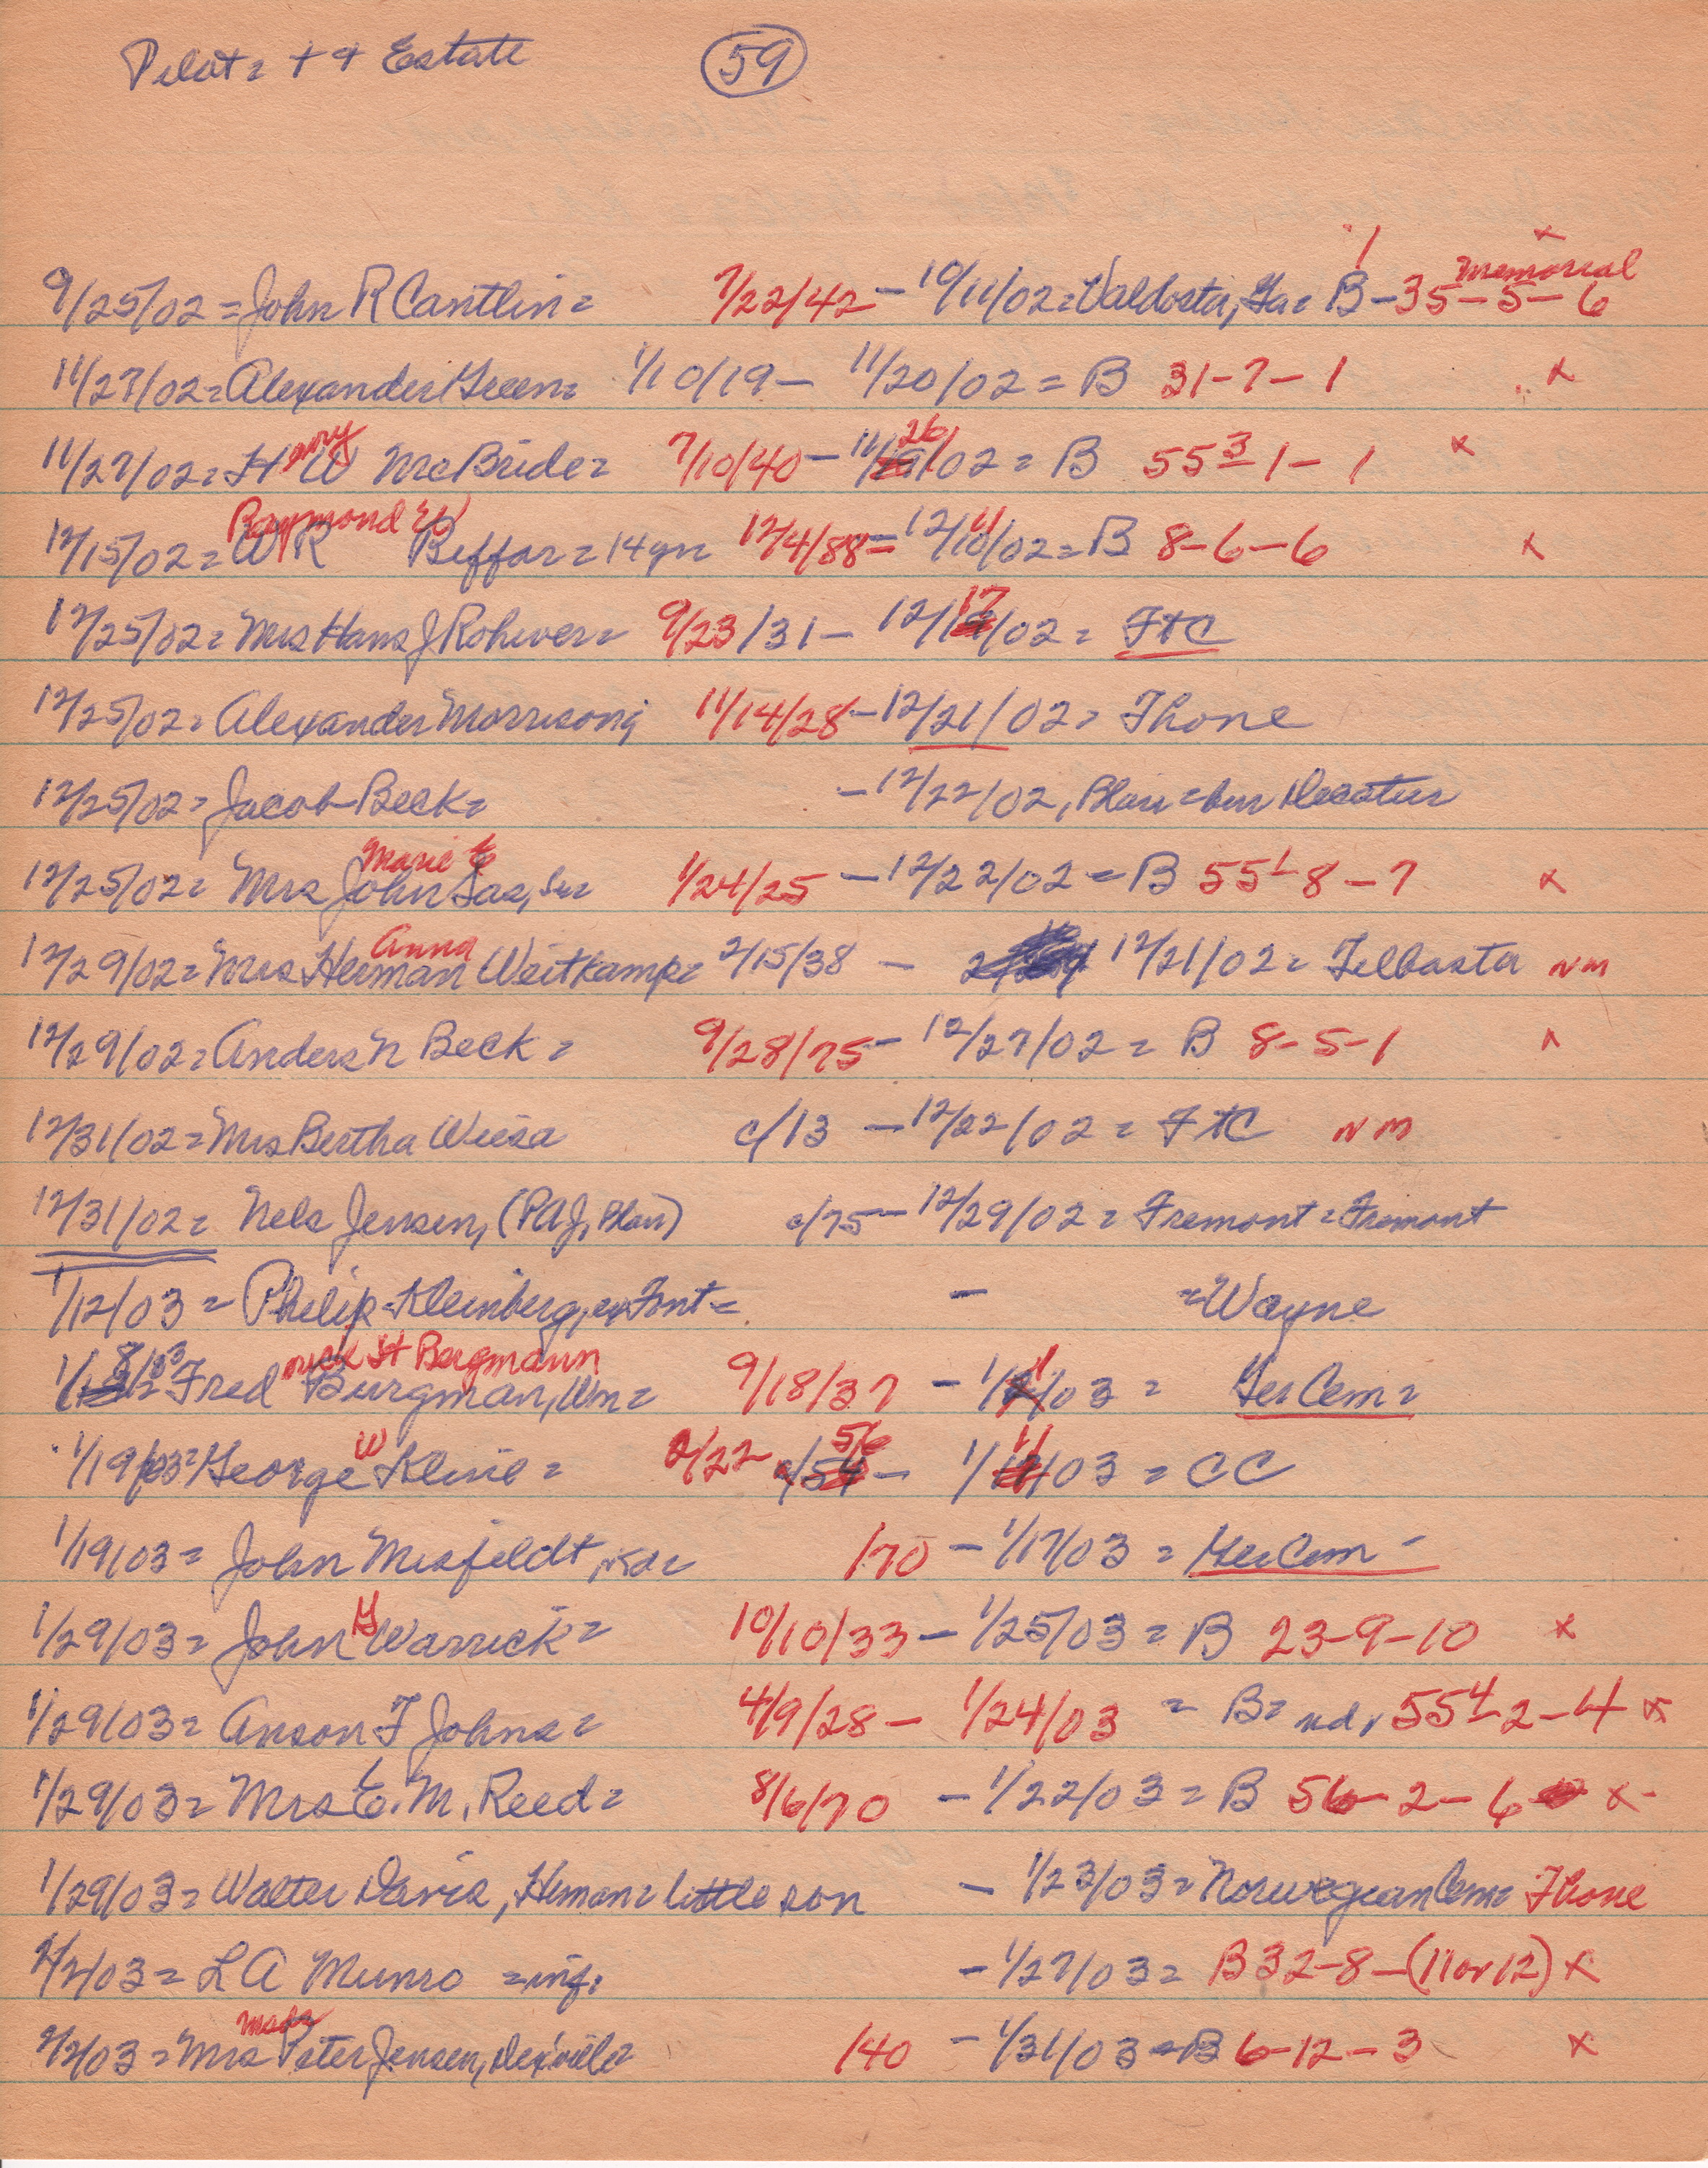 Pilot = + + Estate (59)
9/25/02 = John R Cantlin = 7/22/42 - 10/11/02 = Valdosta, Ga = B - 35 - 5 - 6 memorial x
11/27/02 = Alexander Green = 1/10/19 - 11/20/02 = B 31-7-1 x
11/27/02 = Henry W McBride = 7/10/40 - 11/26/02 = B 55 3 - 1 - 1 x
12/15/02 = WR Raymond W Beffar = 14 yrs 12/4/88 = 12/11/02 = B 8-6-6 x
12/25/02 = Mrs Hans J Rohwer = 9/23/31 - 12/17/02 = FtC
12/25/02 = Alexander Morrison; 11/14/28 - 12/21/02 = Thone
12/25/02 = Jacob Beck = - 12/22/02, Blair = bur Decatur
12/25/02 = Mrs John Marie E Sas, Sr = 1/24/25 - 12/22/02 = B 55 1 - 8 - 7 x
12/29/02 = Mrs Herman Anna Weitkamp = 2/15/38 - 12/21/02 = Telbasta NM
12/29/02 = Anders N Beck = 9/28/75 - 12/27/02 = B 8-5-1 x
12/31/02 = Mrs Bertha Wiesa c/13 - 12/22/02 = FtC NM
12/31/02 = Nels Jensen, (PAJ, Blair) c/75 - 12/29/02 = Fremont = Fremont
1/12/03 = Philip Kleinberg, ex Font = - = Wayne
1/18/03 = Fred erick H Bergmann Burgman, Wm = 9/18/37 - 1/ /03 = Ger Cem =
1/19/03 = George W Kline = 2/22 56 - 1/11/03 = CC
1/19/03 = John Misfeldt, 170 - 1/17/03 = Ger Cem -
1/29/03 = John G Warrick = 10/10/33 - 1/25/03 = B 23-9-10 x
1/29/03 = Anson F Johns = 4/9/28 - 1/24/03 = B = nd, 55 4 - 2 - 4 x
1/29/03 = Mrs E. M. Reed = 8/6/70 - 1/22/03 = B 56 - 2 - 6 x
1/29/03 = Walter Davis, Herman = little son - 1/23/03 = Norwegian Cem = Thone
2/2/03 = L A Munro = inf. - 1/27/03 = B 32-8-(11 or 12) x
2/2/03 = Mrs Peter Jensen, 140 - 1/31/03 = B 6-12-3 x